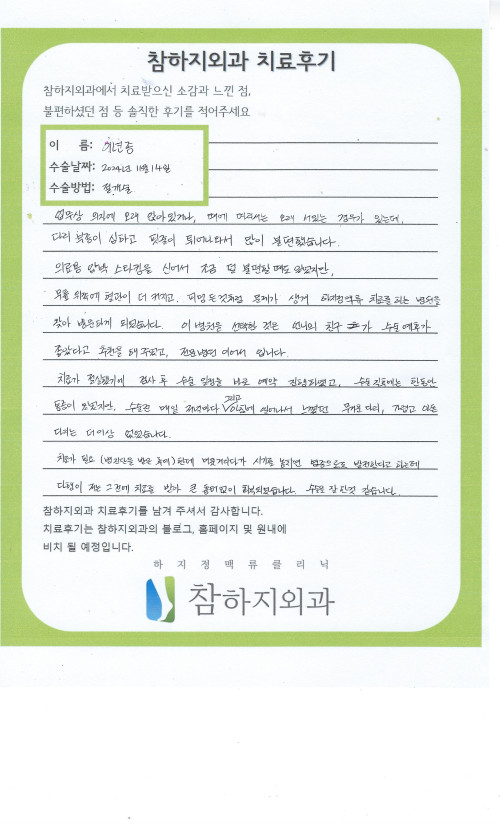 참하지외과 치료후기
참하지외과에서 치료받으신 소감과 느낀 점,
불편하셨던 점 등 솔직한 후기를 적어주세요
이 름:
수술날짜: 2024년 11월 14일
수술방법: 절개술
업무상 의자에 오래 앉아있거나, 때에 따라서는 오래 서있는 경우가 있는데,
다리 부종이 심하고 핏줄이 튀어나와서 많이 불편했습니다.
의료용 압박 스타킹을 신어서 조금 덜 불편할 때도 있었지만,
무릎 뒤쪽에 혈관이 더 커지고, 피멍 든것처럼 문제가 생겨 하지정맥류 치료를 하는 병원을
찾아 방문하게 되었습니다. 이 병원을 선택한 것은 언니의 친구가 수술예후가
좋았다고 추천을 해 주었고, 전문병원 이어서 입니다.
치료가 절실했기에 검사 후 수술 일정을 바로 예약 진행하였고, 수술 직후에는 한동안
통증이 있었지만, 수술전 매일 저녁마다 그리고 아침에 일어나서 느꼈던 무거운 다리, 저렸고 아픈
다리는 더이상 없었습니다.
치료가 필요 (병 진단을 받은 후에) 한데 머뭇거리다가 시기를 놓치면 합병증으로도 발전한다고 하는데
다행히 저는 그전에 치료를 받아 큰 불편없이 회복되었습니다. 수술을 잘 한것 같습니다.
참하지외과 치료후기를 남겨 주셔서 감사합니다.
치료후기는 참하지외과의 블로그, 홈페이지 및 원내에
비치 될 예정입니다.
하지정맥류클리닉
참하지외과